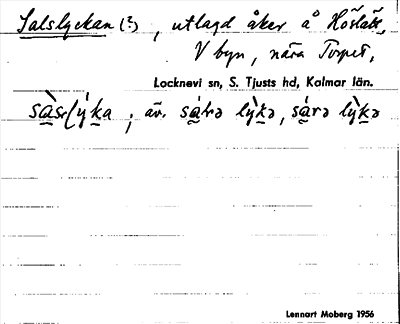 Salslyckan (?), utlagd åker å Höslätt,
V byn, nära Torpet,
Locknevi sn, S. Tjusts hd, Kalmar län.
sàslý́ka; äv. sárə lỳkə, sárə lỳkə
Lennart Moberg 1956